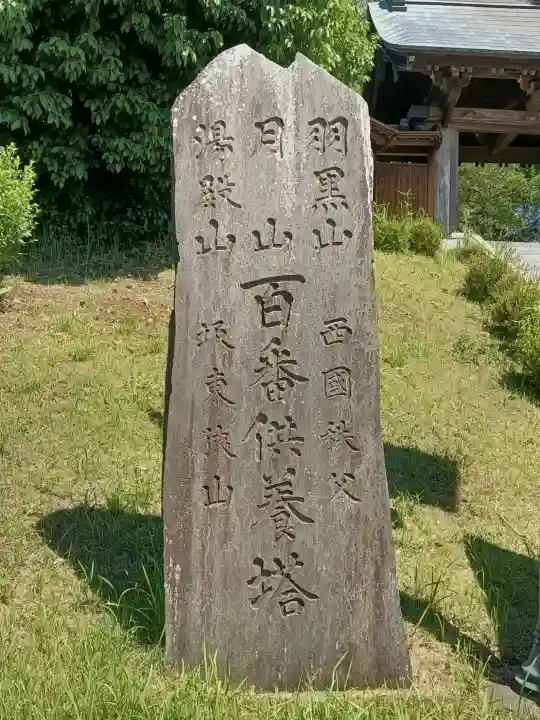 羽黒山 西國秩父
月山 百番供養塔
湯殿山 坂東狭山